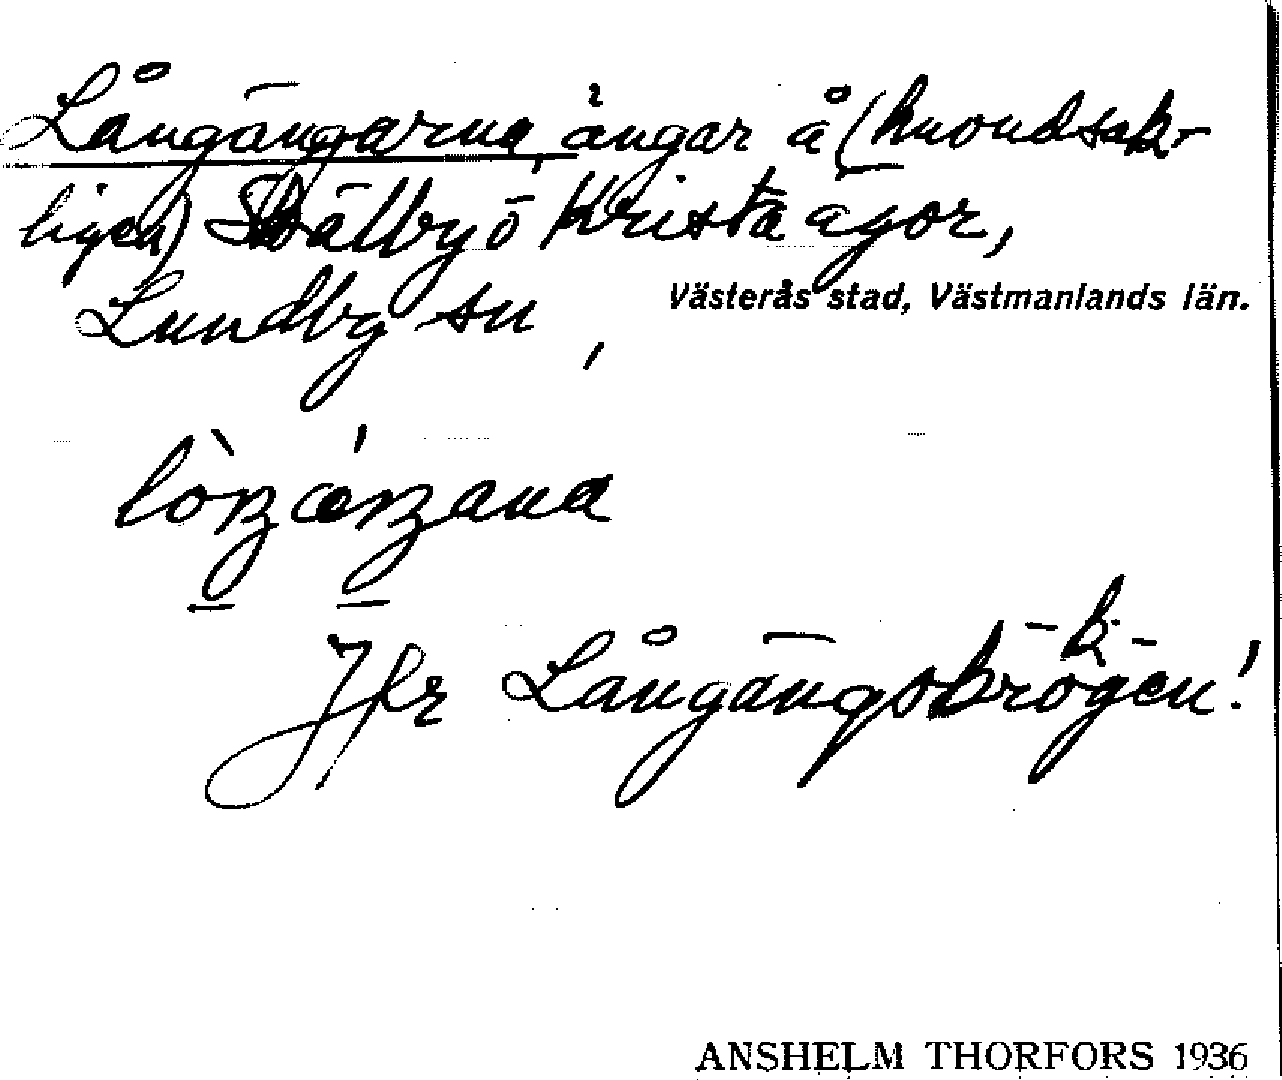 Långängarna, ängar å (huvudsak-
ligen) Dälby o Krista ägor,
Lundby sn
Västerås stad, Västmanlands län.
Jfr Långängskrogen!
-k-
ANSHELM THORFORS 1936